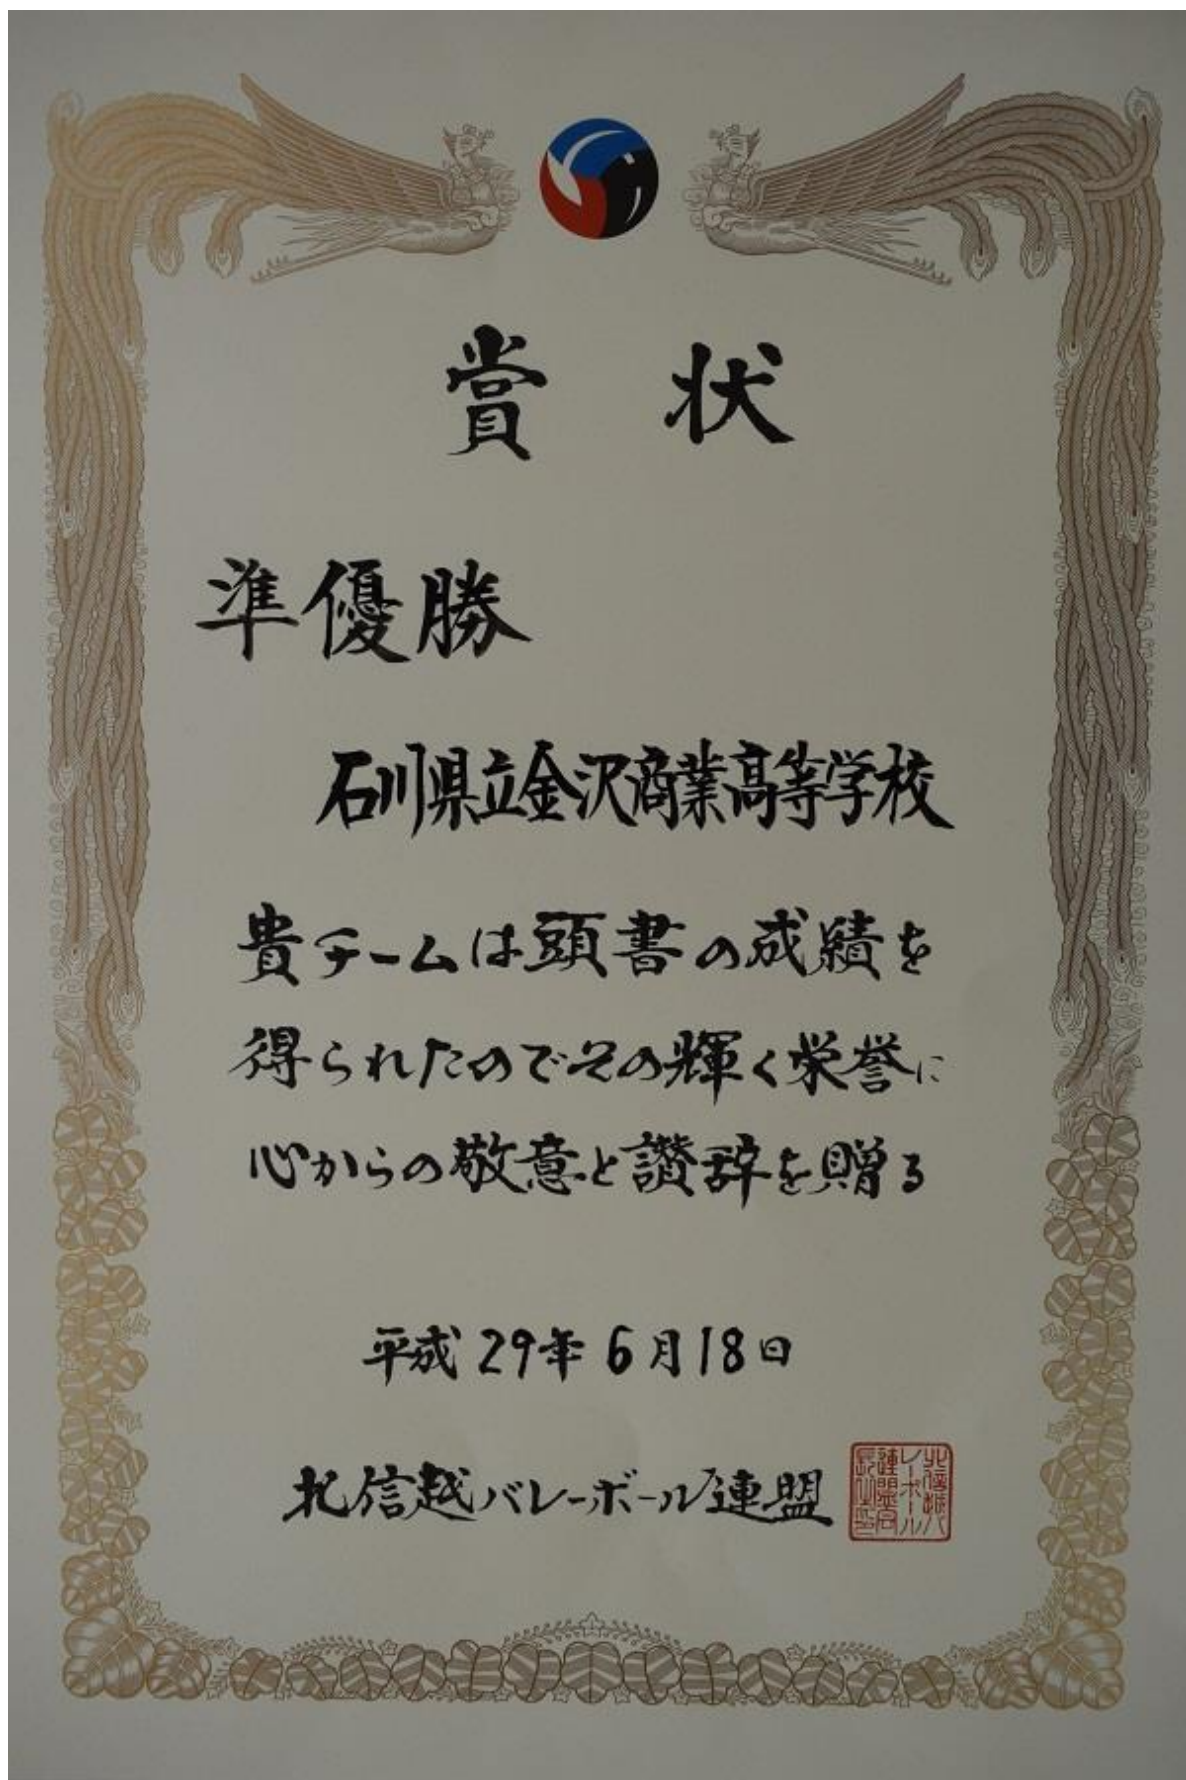 賞状
準優勝
石川県立金沢商業高等学校
貴チームは頭書の成績を
得られたのでその輝く栄誉に
心からの敬意と讃辞を贈る
平成29年6月18日
北信越バレーボール連盟
北信越バ
レーボール
連盟会
長之印